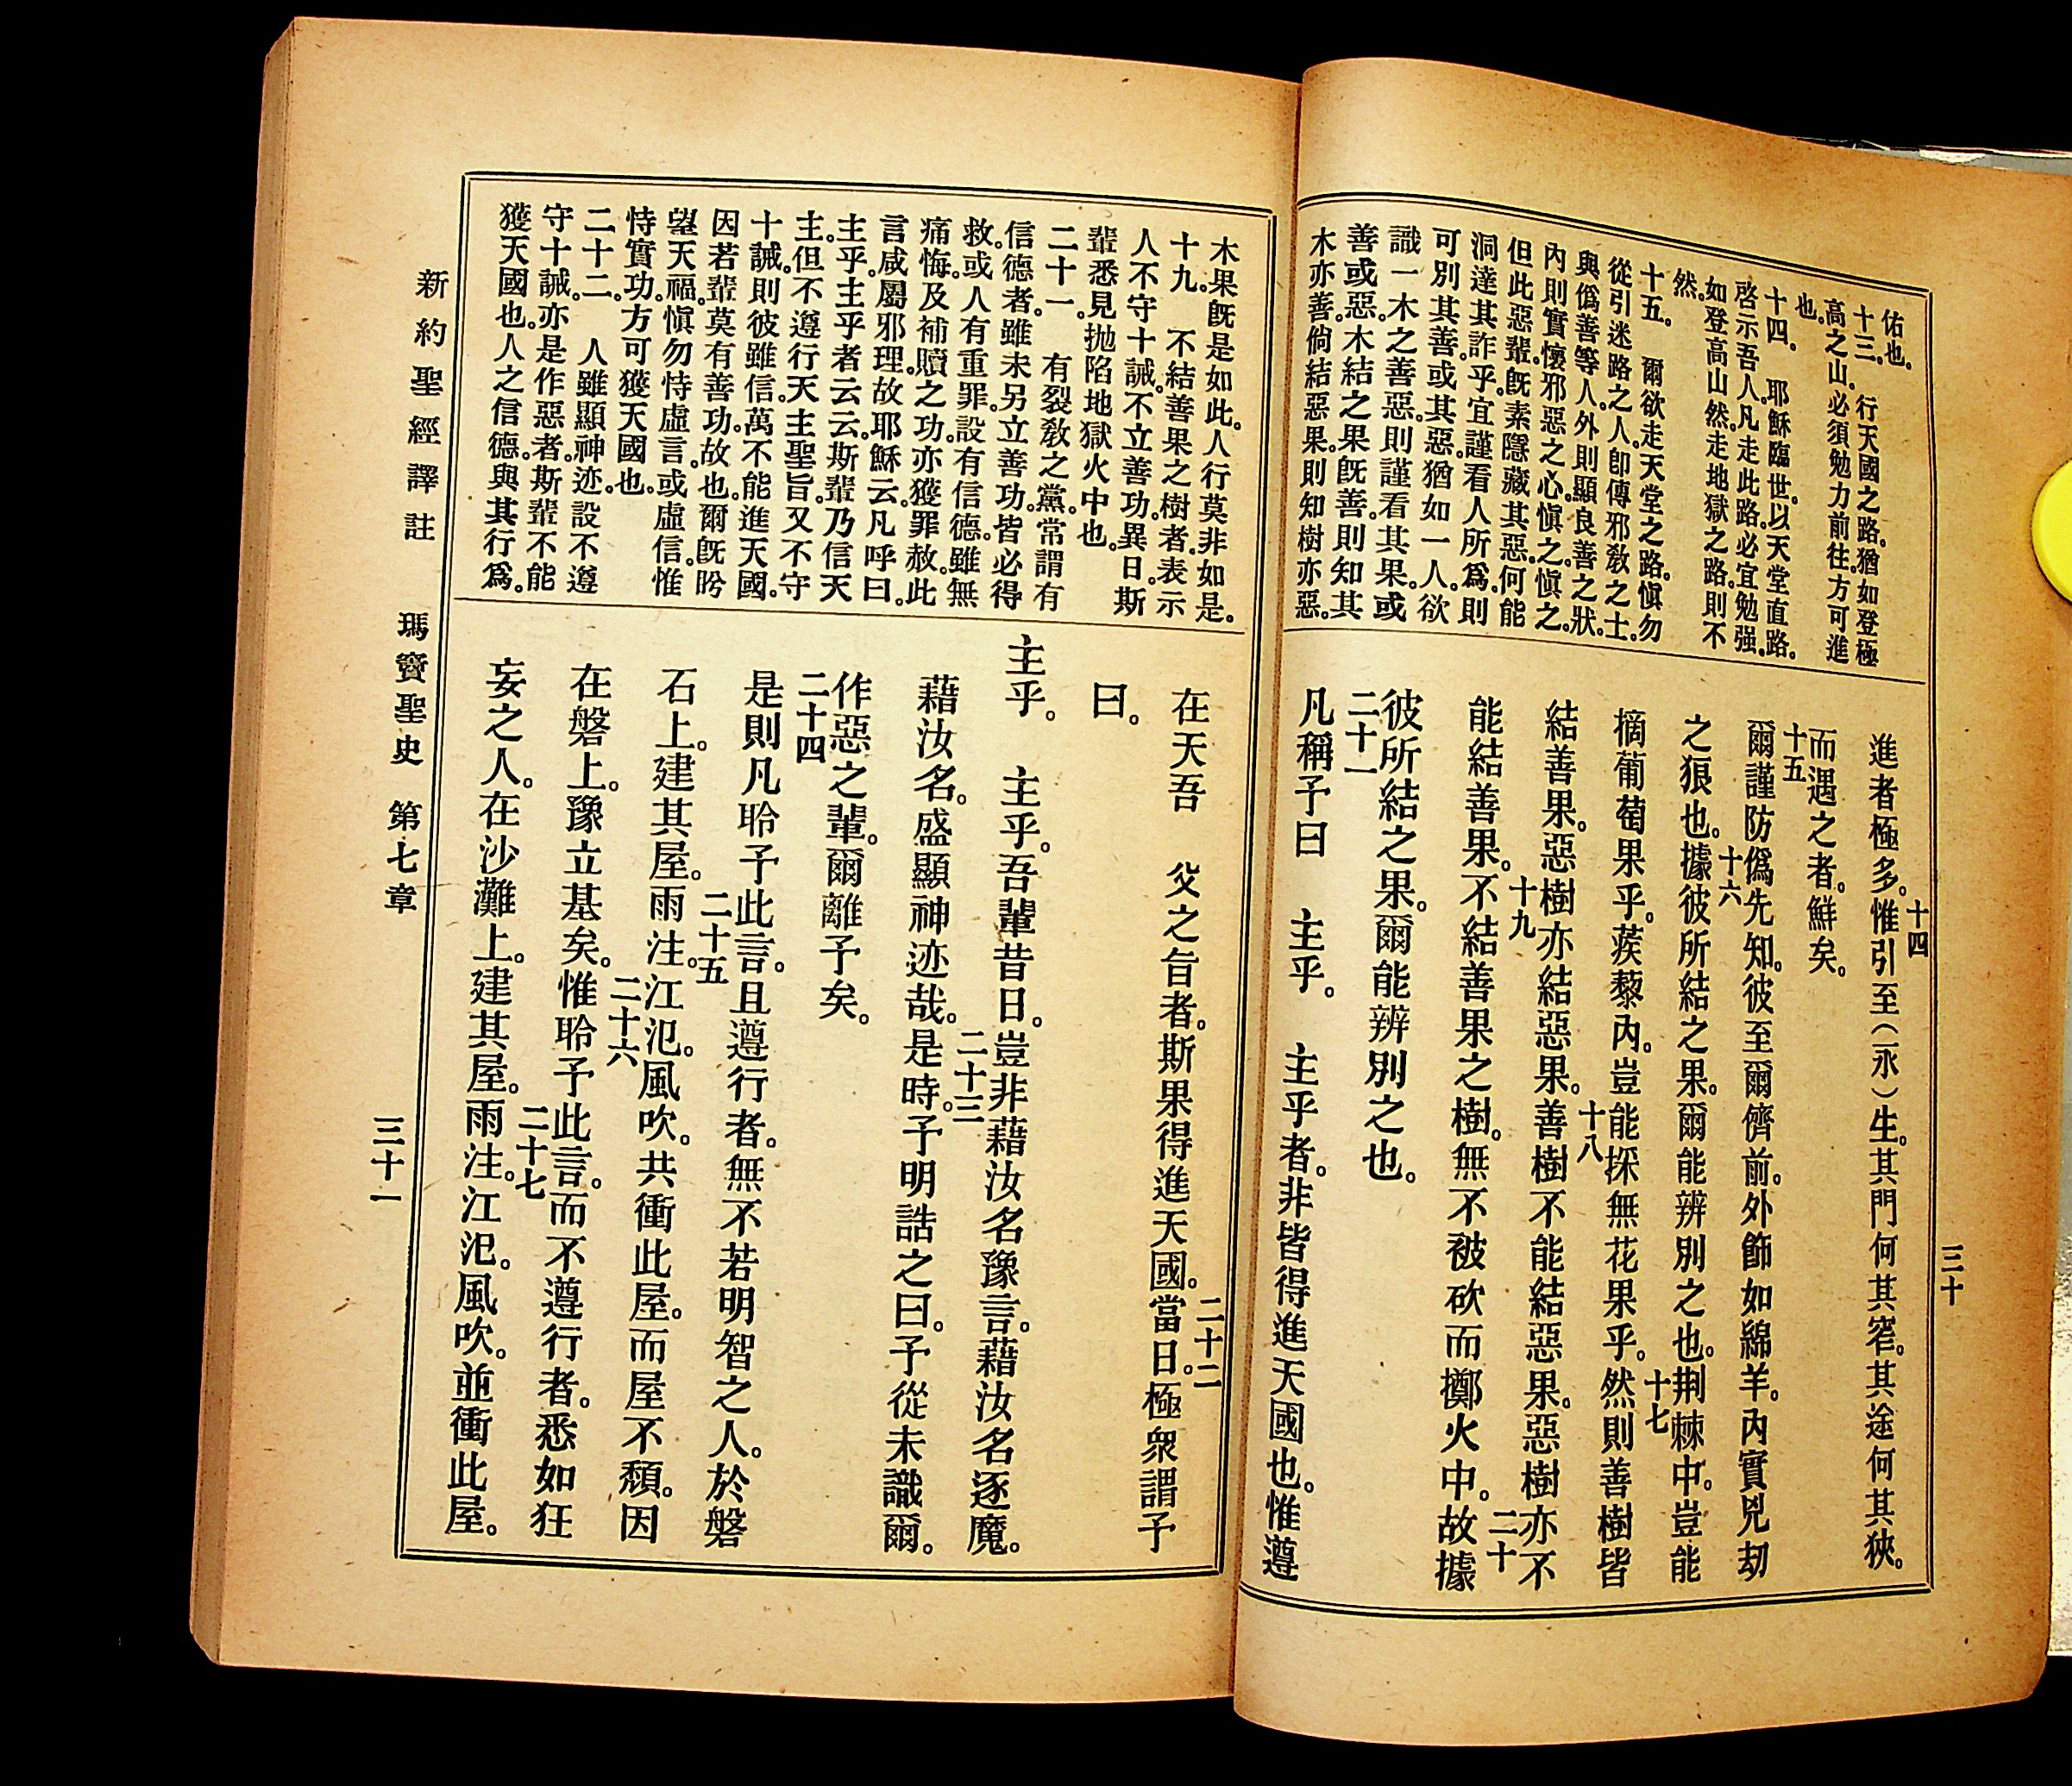 佑也。
十三. 行天國之路。猶如登極
高之山。必須勉力前往。方可進
也。
十四. 耶穌臨世。以天堂直路。
啓示吾人。凡走此路。必宜勉强。
如登高山然。走地獄之路。則不
然。
十五. 爾欲走天堂之路。愼勿
從引迷路之人。卽傳邪敎之士。
與僞善等人。外則顯良善之狀。
內則實懷邪惡之心。愼之。愼之。
但此惡輩。旣素隱藏其惡。何能
洞達其詐乎。宜謹看人所爲。則
可別其善或其惡。猶如一人。欲
識一木之善惡。則謹看其果。或
善或惡。木結之果旣善。則知其
木亦善。倘結惡果。則知樹亦惡。
十四
進者極多。惟引至(永)生。其門何其窄。其途何其狹。
而遇之者。鮮矣。
十五 十六
爾謹防僞先知。彼至爾儕前。外飾如綿羊。內實兇刧
之狼也。據彼所結之果。爾能辨別之也。荆棘中。豈能
十七
摘葡萄果乎。蒺藜內。豈能採無花果乎。然則善樹皆
十八
結善果。惡樹亦結惡果。善樹不能結惡果。惡樹亦不
十九 二十
能結善果。不結善果之樹。無不被砍而擲火中。故據
彼所結之果。爾能辨別之也。
二十一
凡稱予曰 主乎。 主乎者。非皆得進天國也。惟遵
三十
木果旣是如此。人行莫非如是。
十九. 不結善果之樹者。表示
人不守十誡。不立善功。異日。斯
輩悉見抛陷地獄火中也。
二十一. 有裂敎之黨。常謂有
信德者。雖未另立善功。皆必得
救。或人有重罪。設有信德。雖無
痛悔。及補贖之功。亦獲罪赦。此
言咸屬邪理。故耶穌云。凡呼曰。
主乎。主乎者云云。斯輩乃信天
主。但不遵行天主聖旨。又不守
十誡。則彼雖信。萬不能進天國。
因若輩。莫有善功。故也。爾旣盻
望天福。愼勿恃虛言。或虛信。惟
恃實功。方可獲天國也。
二十二. 人雖顯神迹。設不遵
守十誡。亦是作惡者。斯輩不能
獲天國也。人之信德。與其行爲。
二十二
在天吾 父之旨者。斯果得進天國。當日。極衆謂予
曰。
主乎。 主乎。吾輩昔日。豈非藉汝名豫言。藉汝名逐魔。
二十三
藉汝名。盛顯神迹哉。是時。予明誥之曰。予從未識爾。
作惡之輩。爾離予矣。
二十四
是則凡聆予此言。且遵行者。無不若明智之人。於磐
二十五
石上。建其屋。雨注。江氾。風吹。共衝此屋。而屋不頹。因
二十六
在磐上。豫立基矣。惟聆予此言。而不遵行者。悉如狂
二十七
妄之人。在沙灘上。建其屋。雨注。江氾。風吹。並衝此屋。
新約聖經譯註 瑪竇聖史 第七章 三十一